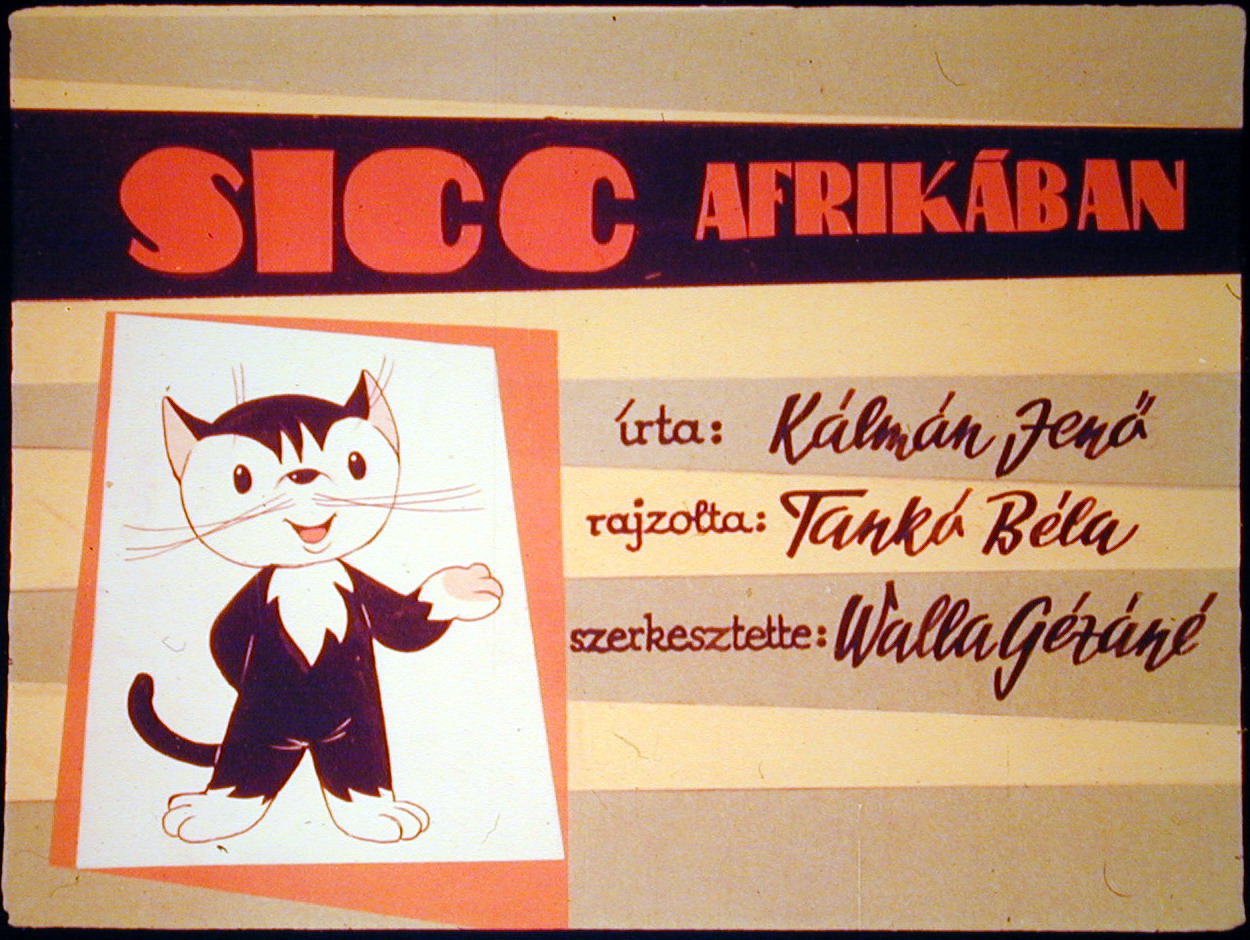 SICC AFRIKÁBAN
írta: Kálmán Jenő
rajzolta: Tankó Béla
szerkesztette: Walla Gézáné